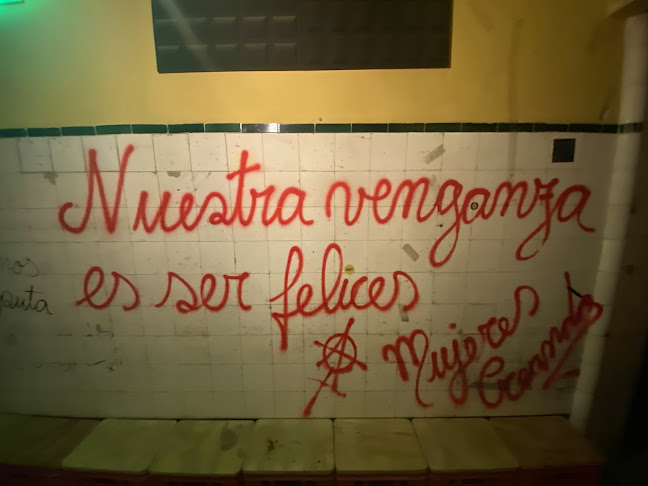 Nuestra venganza
es ser felices
Mujeres
nos
puta